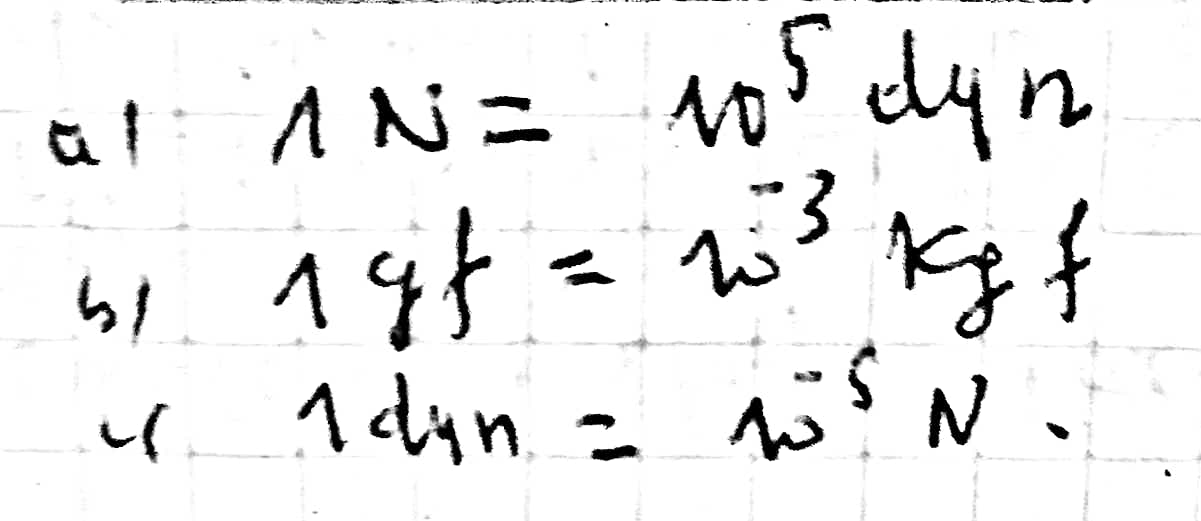 a) 1 N = 10⁵ dyn
b) 1 gf = 10⁻³ Kgf
c) 1 dyn = 10⁻⁵ N.